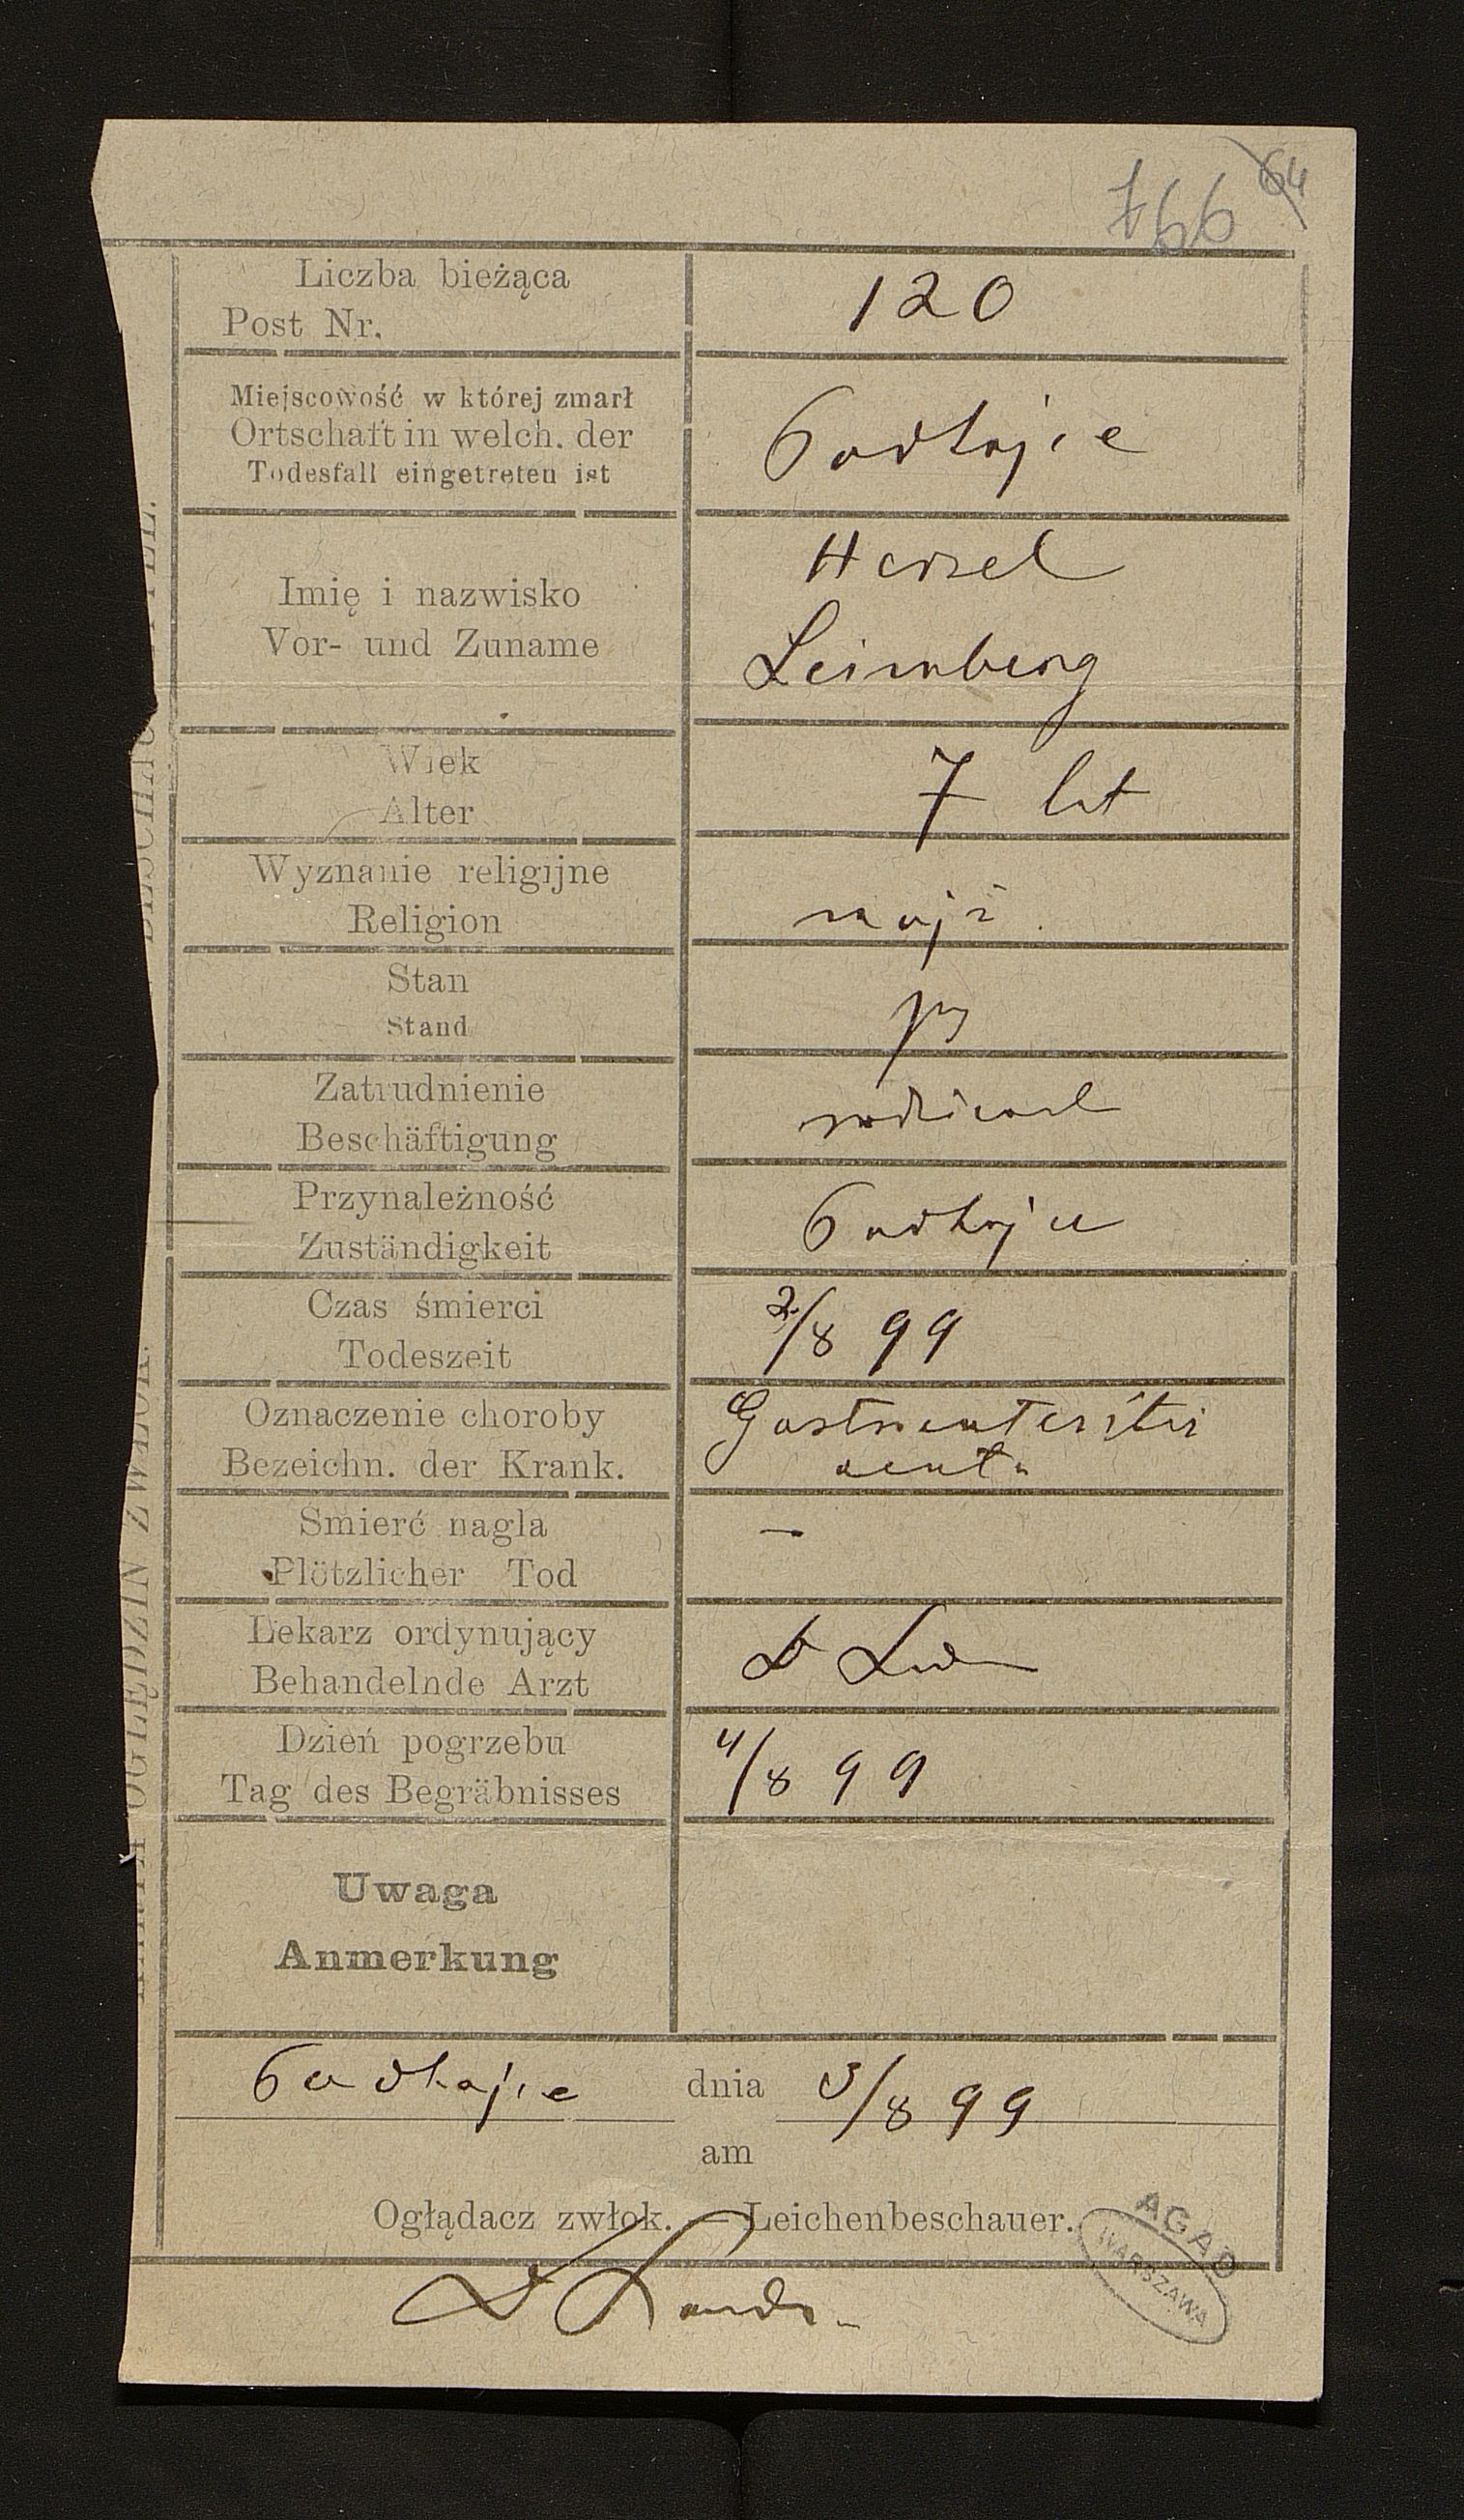 766 64
Liczba bieżąca
Post Nr.
120
Miejscowość w której zmarł
Ortschaft in welch. der
Todesfall eingetreten ist
Podhajce
Imię i nazwisko
Vor- und Zuname
Hersel
Leimberg
Wiek
Alter
7 lat
Wyznanie religijne
Religion
mojż.
Stan
Stand
Zatrudnienie
Beschäftigung
Przynależność
Zuständigkeit
Podhajce
Czas śmierci
Todeszeit
2/8 99
Oznaczenie choroby
Bezeichn. der Krank.
Gastroenteritis
acuta
Smierć nagla
Plötzlicher Tod
—
Lekarz ordynujący
Behandelnde Arzt
Dr
Dzień pogrzebu
Tag des Begräbnisses
4/8 99
Uwaga
Anmerkung
Podhajce dnia 3/8 99
am
Oglądacz zwłok. — Leichenbeschauer.
Dr
AGAD
WARSZAWA
OGLĘDZIN ZWŁOK.